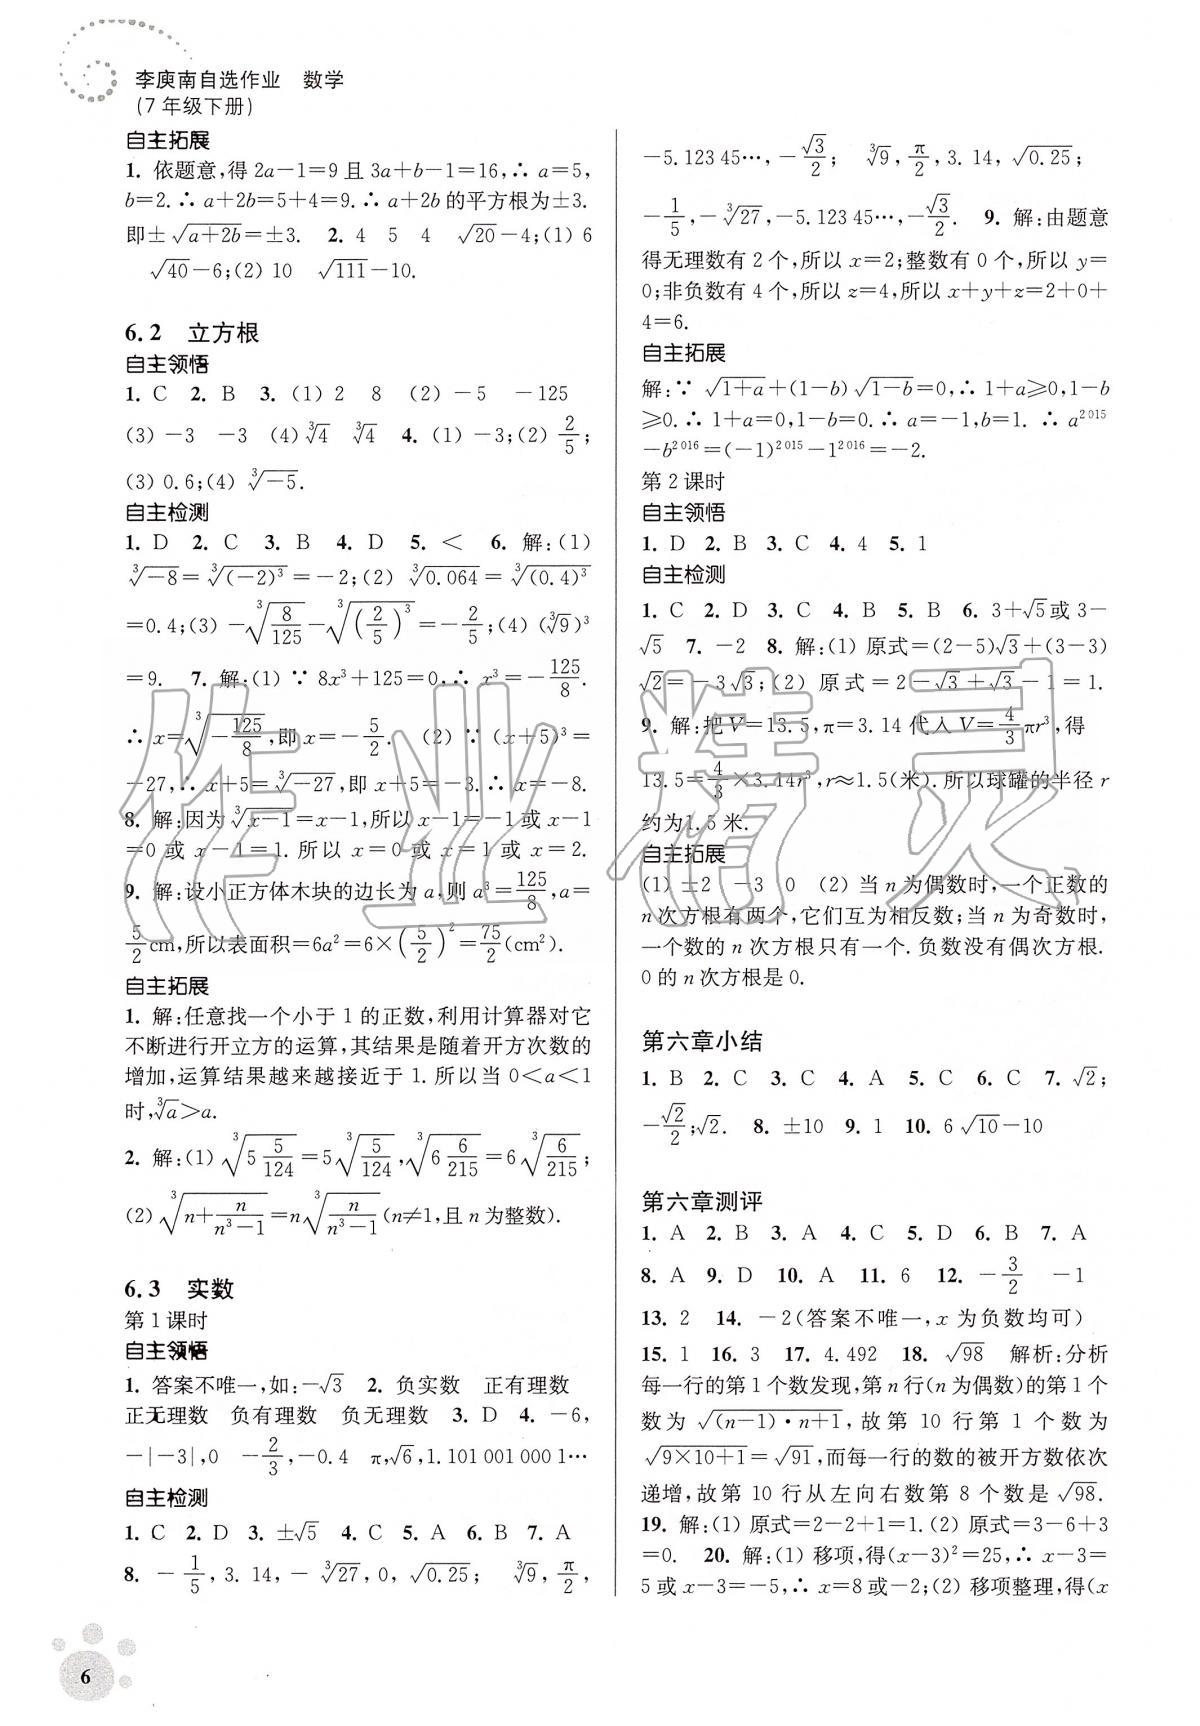 李庾南自选作业 数学
(7年级下册)
自主拓展
1. 依题意,得 2a-1=9 且 3a+b-1=16,∴ a=5,
b=2.∴ a+2b=5+4=9.∴ a+2b 的平方根为±3.
即±√(a+2b)=±3. 2. 4 5 4 √20-4;(1) 6
√40-6;(2) 10 √111-10.
6.2 立方根
自主领悟
1. C 2. B 3. (1) 2 8 (2) -5 -125
(3) -3 -3 (4) ∛4 ∛4 4. (1) -3;(2) 2/5;
(3) 0.6;(4) ∛-5.
自主检测
1. D 2. C 3. B 4. D 5. < 6. 解:(1)
∛-8=∛(-2)³=-2;(2) ∛0.064=∛(0.4)³
=0.4;(3) -∛(8/125)-∛(2/5)³=-2/5;(4) (∛9)³
=9. 7. 解:(1) ∵ 8x³+125=0,∴ x³=-125/8.
∴ x=∛(-125/8),即 x=-5/2. (2) ∵ (x+5)³=
-27,∴ x+5=∛-27,即 x+5=-3.∴ x=-8.
8. 解:因为∛(x-1)=x-1,所以 x-1=-1 或 x-1
=0 或 x-1=1.所以 x=0 或 x=1 或 x=2.
9. 解:设小正方体木块的边长为 a,则 a³=125/8,a=
5/2 cm,所以表面积=6a²=6×(5/2)²=75/2(cm²).
自主拓展
1. 解:任意找一个小于 1 的正数,利用计算器对它
不断进行开立方的运算,其结果是随着开方次数的
增加,运算结果越来越接近于 1.所以当 0<a<1
时,∛a>a.
2. 解:(1) ∛(5 5/124)=5∛(5/124),∛(6 6/215)=6∛(6/215);
(2) ∛(n+n/(n³-1))=n∛(n/(n³-1))(n≠1,且 n 为整数).
6.3 实数
第 1 课时
自主领悟
1. 答案不唯一,如:-√3 2. 负实数 正有理数
正无理数 负有理数 负无理数 3. D 4. -6,
-|-3|,0 -2/3,-0.4 π,√6,1.101 001 000 1…
自主检测
1. C 2. D 3. ±√5 4. C 5. A 6. B 7. A
8. -1/5,3.14,-∛27,0,√0.25; ∛9,π/2,
-5.123 45…,-√3/2; ∛9,π/2,3.14,√0.25;
-1/5,-∛27,-5.123 45…,-√3/2. 9. 解:由题意
得无理数有 2 个,所以 x=2;整数有 0 个,所以 y=
0;非负数有 4 个,所以 z=4,所以 x+y+z=2+0+
4=6.
自主拓展
解:∵ √(1+a)+(1-b)√(1-b)=0,∴ 1+a≥0,1-b
≥0.∴ 1+a=0,1-b=0.∴ a=-1,b=1. ∴ a²⁰¹⁵
-b²⁰¹⁶=(-1)²⁰¹⁵-1²⁰¹⁶=-2.
第 2 课时
自主领悟
1. D 2. B 3. C 4. 4 5. 1
自主检测
1. C 2. D 3. C 4. B 5. B 6. 3+√5或 3-
√5 7. -2 8. 解:(1) 原式=(2-5)√3+(3-3)
√2=-3√3;(2) 原式=2-√3+√3-1=1.
9. 解:把 V=13.5,π=3.14 代入 V=4/3πr³,得
13.5=4/3×3.14r³,r≈1.5(米).所以球罐的半径 r
约为1.5 米.
自主拓展
(1) ±2 -3 0 (2) 当 n 为偶数时,一个正数的
n 次方根有两个,它们互为相反数;当 n 为奇数时,
一个数的 n 次方根只有一个.负数没有偶次方根.
0 的 n 次方根是 0.
第六章小结
1. B 2. C 3. C 4. A 5. C 6. C 7. √2;
-√2/2;√2. 8. ±10 9. 1 10. 6 √10-10
第六章测评
1. A 2. B 3. A 4. C 5. D 6. B 7. A
8. A 9. D 10. A 11. 6 12. -3/2 -1
13. 2 14. -2(答案不唯一,x 为负数均可)
15. 1 16. 3 17. 4.492 18. √98 解析:分析
每一行的第 1 个数发现,第 n 行(n 为偶数)的第 1 个
数为 √((n-1)·n+1),故第 10 行第 1 个数为
√(9×10+1)=√91,而每一行的数的被开方数依次
递增,故第 10 行从左向右数第 8 个数是 √98.
19. 解:(1) 原式=2-2+1=1.(2) 原式=3-6+3
=0. 20. 解:(1) 移项,得(x-3)²=25,∴ x-3=
5 或 x-3=-5,∴ x=8 或-2;(2) 移项整理,得(x
6
作业精灵